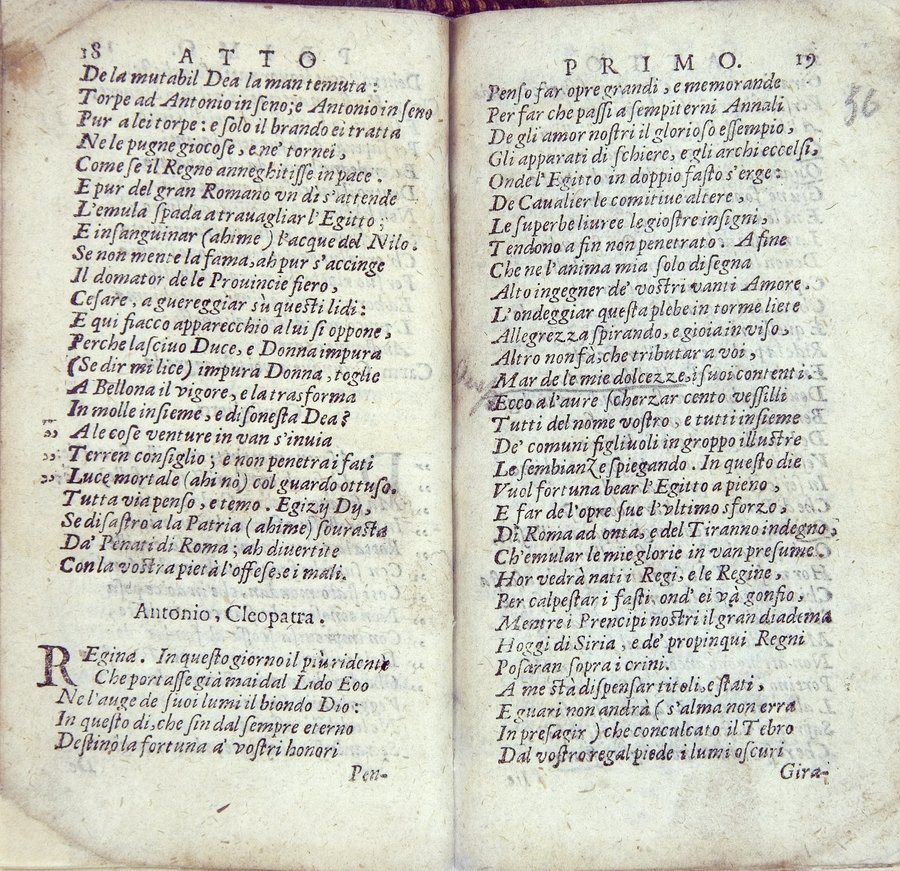 18 ATTO
De la mutabil Dea la man temuta:
Torpe ad Antonio in seno; e Antonio in seno
Pur a lei torpe: e solo il brando ei tratta
Ne le pugne giocose, e ne' tornei,
Come se il Regno anneghitisse in pace.
E pur del gran Romano vn dì s'attende
L'emula spada a trauagliar l'Egitto;
E insanguinar (ahime) l'acque del Nilo.
Se non mente la fama, ah pur s'accinge
Il domator de le Prouincie fiero,
Cesare, a guereggiar sù questi lidi:
E qui fiacco apparecchio a lui si oppone,
Perche lasciuo Duce, e Donna impura
(Se dir mi lice) impura Donna, toglie
A Bellona il vigore, e la trasforma
In molle insieme, e disonesta Dea?
„ A le cose venture in van s'inuia
„ Terren consiglio; e non penetra i fati
„ Luce mortale (ahi nò) col guardo ottuso.
Tutta via penso, e temo. Egizij Dy,
Se disastro a la Patria (ahime) sourasta
Da' Penati di Roma; ah diuertite
Con la vostra pietà l'offese, e i mali.
Antonio, Cleopatra.
REgina. In questo giorno il più ridente
Che portasse già mai dal Lido Eoo
Ne l'auge de' suoi lumi il biondo Dio:
In questo di, che sin dal sempre eterno
Destinò la fortuna a' vostri honori
Pen-
PRIMO. 19
56
Penso far opre grandi, e memorande
Per far che passi a sempiterni Annali
De gli amor nostri il glorioso essempio,
Gli apparati di schiere, e gli archi eccelsi,
Onde l'Egitto in doppio fasto s'erge:
De Caualier le comitiue altere,
Le superbe liuree le giostre insigni,
Tendono a fin non penetrato. A fine
Che ne l'anima mia solo disegna
Alto ingegner de' vostri vanti Amore.
L'ondeggiar questa plebe in torme liete
Allegrezza spirando, e gioia in viso,
Altro non fà, che tributar a voi,
Mar de le mie dolcezze, i suoi contenti.
Ecco a l'aure scherzar cento vessilli
Tutti del nome vostro, e tutti insieme
De' comuni figliuoli in groppo illustre
Le sembianze spiegando. In questo die
Vuol fortuna bear l'Egitto a pieno,
E far de l'opre sue l'vltimo sforzo,
Di Roma ad onta, e del Tiranno indegno,
Ch'emular le mie glorie in van presume.
Hor vedrà nati i Regi, e le Regine,
Per calpestar i fasti, ond' ei và gonfio,
Mentre i Prencipi nostri il gran diadema
Hoggi di Siria, e de' propinqui Regni
Posaran sopra i crini.
A me stà dispensar titoli, e stati,
E guari non andrà (s'alma non erra
In presagir) che conculcato il Tebro
Dal vostro regal piede i lumi oscuri
Gira-